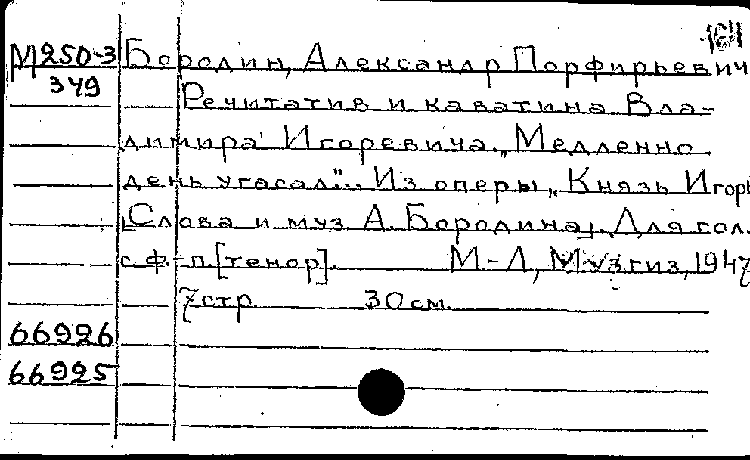 М250-3 Бородин, Александр Порфирьевич
349 Речитатив и каватина Вла-
димира Игоревича „Медленно
день угасал"... Из оперы „Князь Игорь
[Слова и муз А. Бородина]. Для гол.
с ф.-п. [тенор]. М-Л, Музгиз, 1947
7 стр. 30 см.
66926
66925